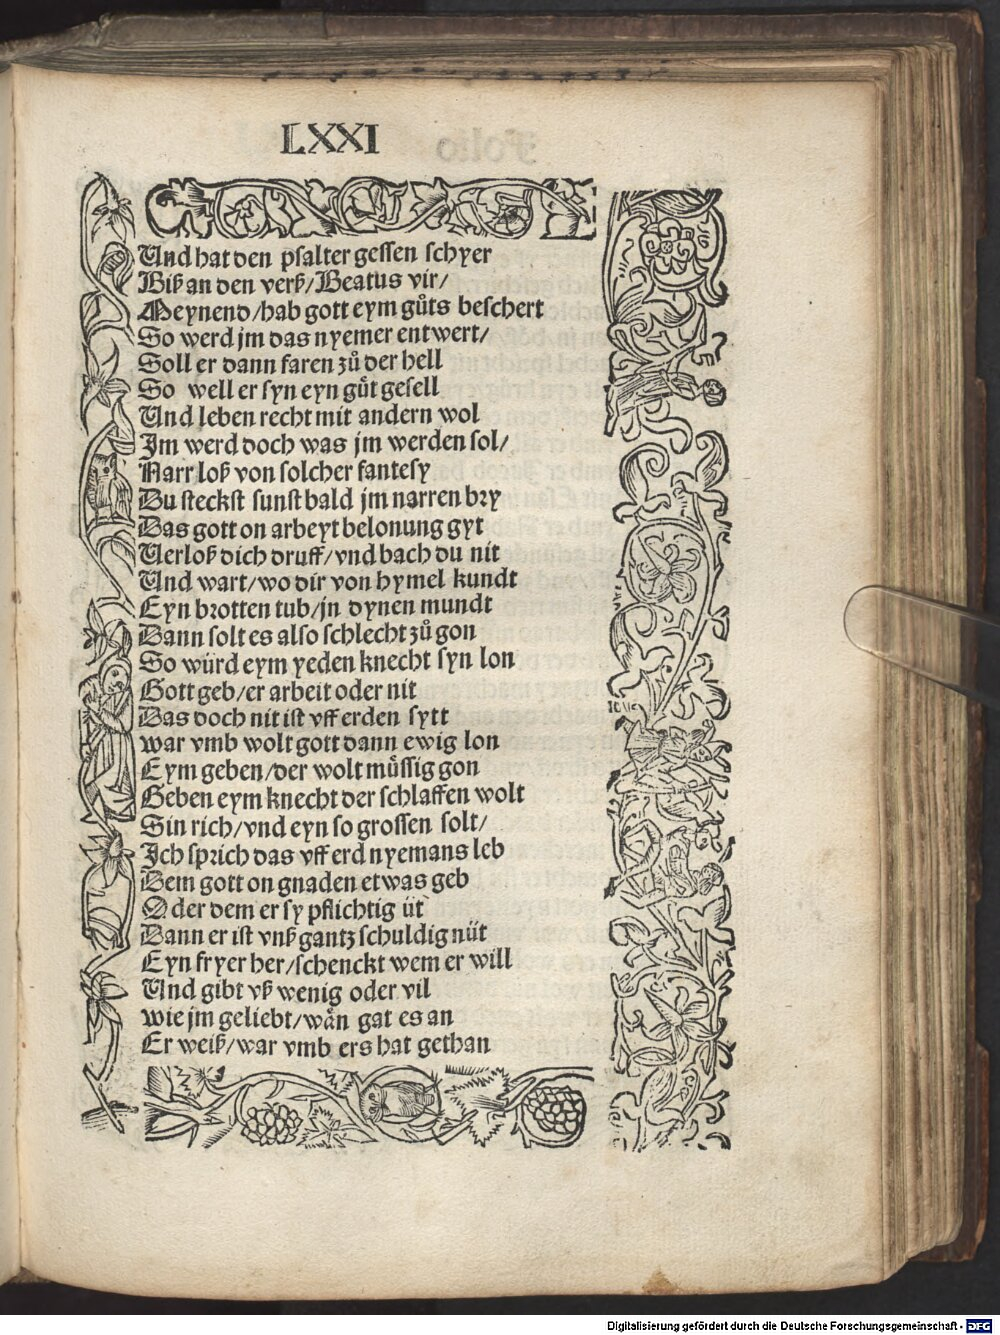 LXXI
Und hat den psalter gessen schyer
Biß an den verß/Beatus vir/
Meynend/hab gott eym gůts beschert
So werd jm das nyemer entwert/
Soll er dann faren zů der hell
So well er syn eyn gůt gesell
Und leben recht mit andern wol
Im werd doch was jm werden sol/
Narr loß von solcher fantesy
Du steckst sunst bald jm narren bry
Das gott on arbeyt belonung gyt
Verloß dich druff/vnd bach du nit
Und wart/wo dir von hymel kundt
Eyn brotten tub/jn dynen mundt
Dann solt es also schlecht zů gon
So würd eym yeden knecht syn lon
Gott geb/er arbeit oder nit
Das doch nit ist vff erden sytt
war vmb wolt gott dann ewig lon
Eym geben/der wolt müssig gon
Geben eym knecht der schlaffen wolt
Sin rich/vnd eyn so grossen solt/
Ich sprich das vff erd nyemans leb
Dem gott on gnaden etwas geb
Oder dem er sy pflichtig üt
Dann er ist vnß gantz schuldig nüt
Eyn fryer her/schenckt wem er will
Und gibt vß wenig oder vil
wie jm geliebt/wān gat es an
Er weiß/war vmb ers hat gethan
Digitalisierung gefördert durch die Deutsche Forschungsgemeinschaft - DFG